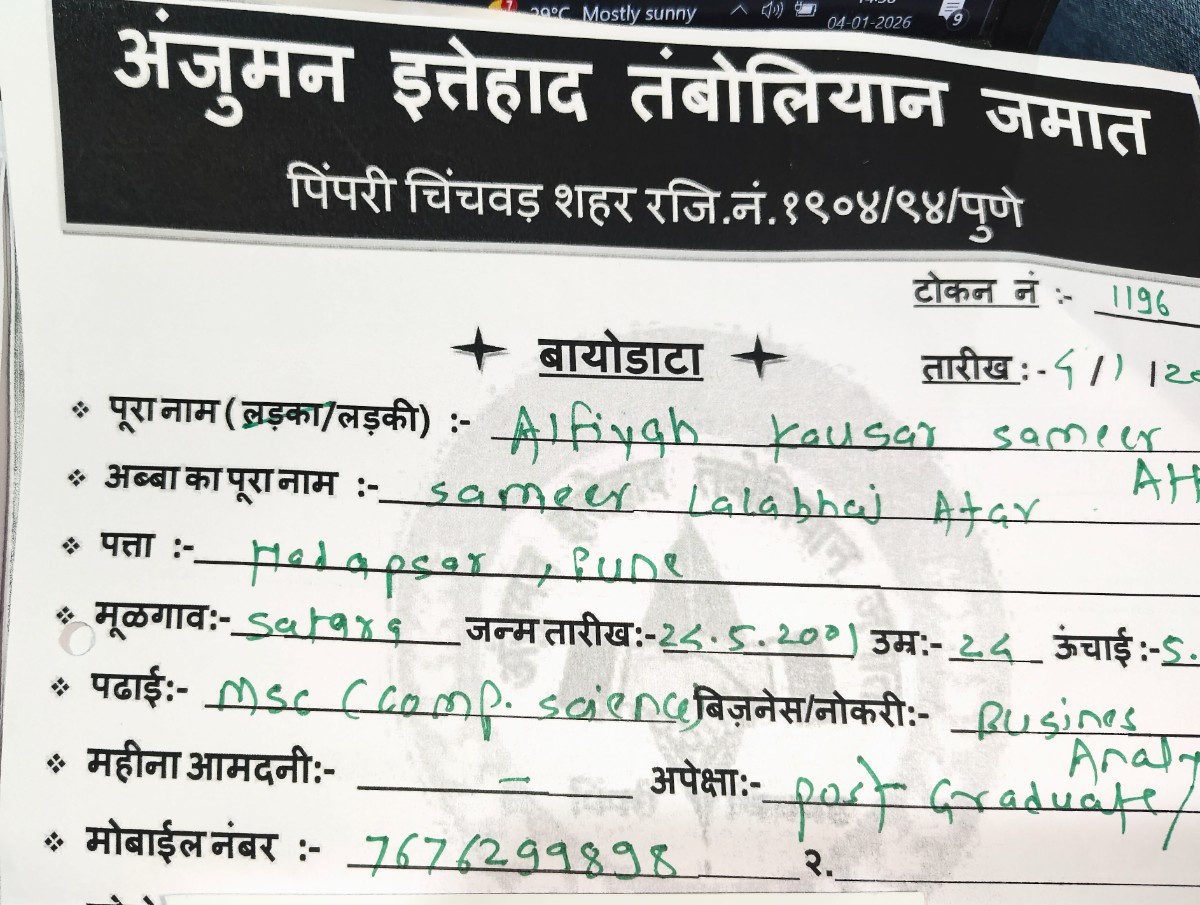 29°C Mostly sunny
04-01-2026
9
अंजुमन इत्तेहाद तंबोलियान जमात
पिंपरी चिंचवड़ शहर रजि.नं.१९०४/९४/पुणे
टोकन नं :- 1196
बायोडाटा
तारीख :- 4/1/20
पूरा नाम ( लड़का/लड़की) :- Alfiyah kausar sameer
अब्बा का पूरा नाम :- sameer Lalabhai Atar
पत्ता :- Hadapsar, Pune
मूळगाव:- satara जन्म तारीख:- 24.5.2001 उम्र:- 24 ऊंचाई :- 5.
पढाई:- Msc (comp. science) बिज़नेस/नोकरी:- Busines
महीना आमदनी:- - अपेक्षा:- post Graduate/
मोबाईल नंबर :- 7676299898 २.